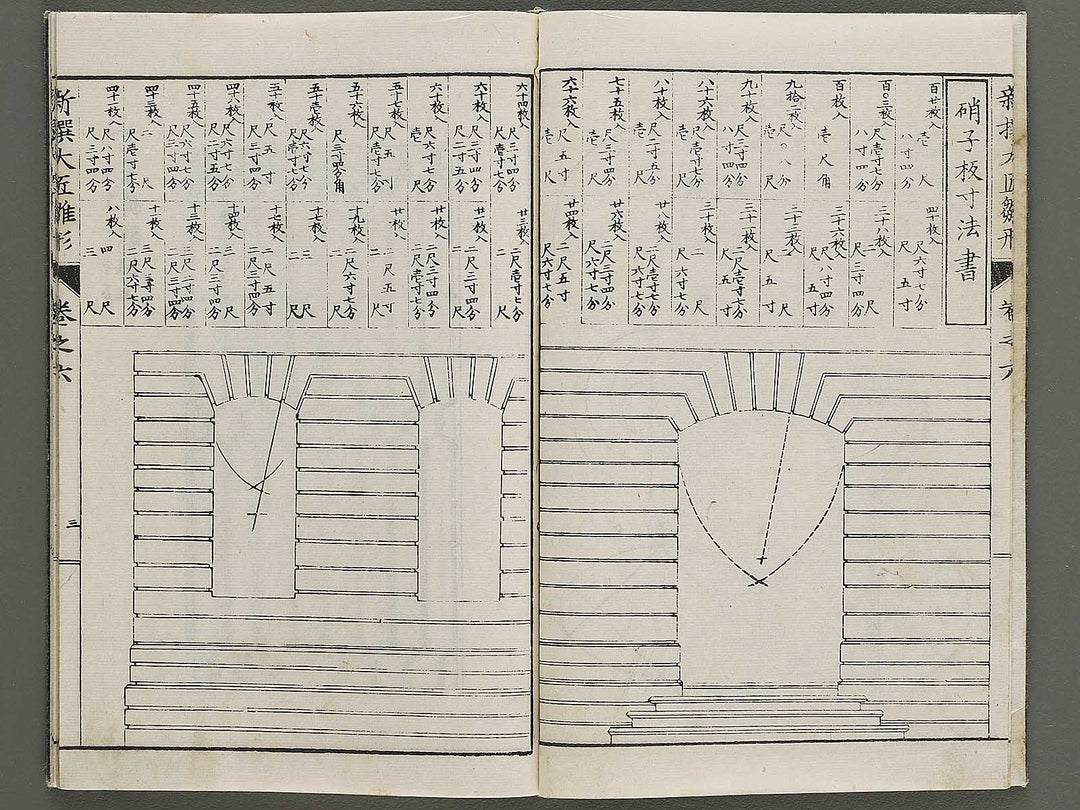 新撰大匠雛形 巻之六
硝子板寸法書
百廿枚入 壱尺 八寸四分
百〇三枚入 尺壱寸七分 八寸四分
百枚入 壱尺角
九拾二枚入 尺〇八分 壱尺
九十枚入 尺二寸四分 八寸四分
八十六枚入
八十枚入 尺二寸五分 壱尺
七十五枚入 尺三寸四分 壱尺
六十六枚入 尺五寸 壱尺
四十枚入 尺六寸七分 尺五寸
三十八枚入 尺二寸四分
三十六枚入 尺八寸四分 尺五寸
三十三枚入 二尺 尺五寸
三十枚入 二尺壱寸七分 尺五寸
三十枚入 二尺 尺六寸七分
廿八枚入 二尺壱寸七分 尺六寸七分
廿六枚入 二尺三寸四分 尺六寸七分
廿四枚入 二尺五寸 尺六寸七分
六十四枚入 尺三寸四分 尺壱寸七分
六十枚入 尺三寸四分 尺二寸五分
六十枚入 尺六寸七分 壱尺
五十七枚入 尺五寸 尺壱寸七分
五十六枚入 尺三寸四分角
五十壱枚入 尺六寸七分 尺壱寸七分
五十枚入 尺五寸 尺三寸四分
四十八枚入 尺六寸七分 尺二寸五分
四十五枚入 尺六寸七分 尺三寸四分
四十三枚入 二尺 尺壱寸七分
四十一枚入 尺八寸四分 尺三寸四分
廿三枚入 二尺壱寸七分 二尺
廿一枚入 二尺三寸四分 二尺
廿枚入 二尺三寸四分 二尺壱寸七分
廿枚入 二尺五寸 二尺
十九枚入 二尺六寸七分 二尺
十七枚入 三尺 二尺
十七枚入 二尺五寸 二尺三寸四分
十四枚入 三尺 二尺三寸四分
十三枚入
十一枚入
八枚入 四尺 三尺
新撰大匠雛形 巻之六
三